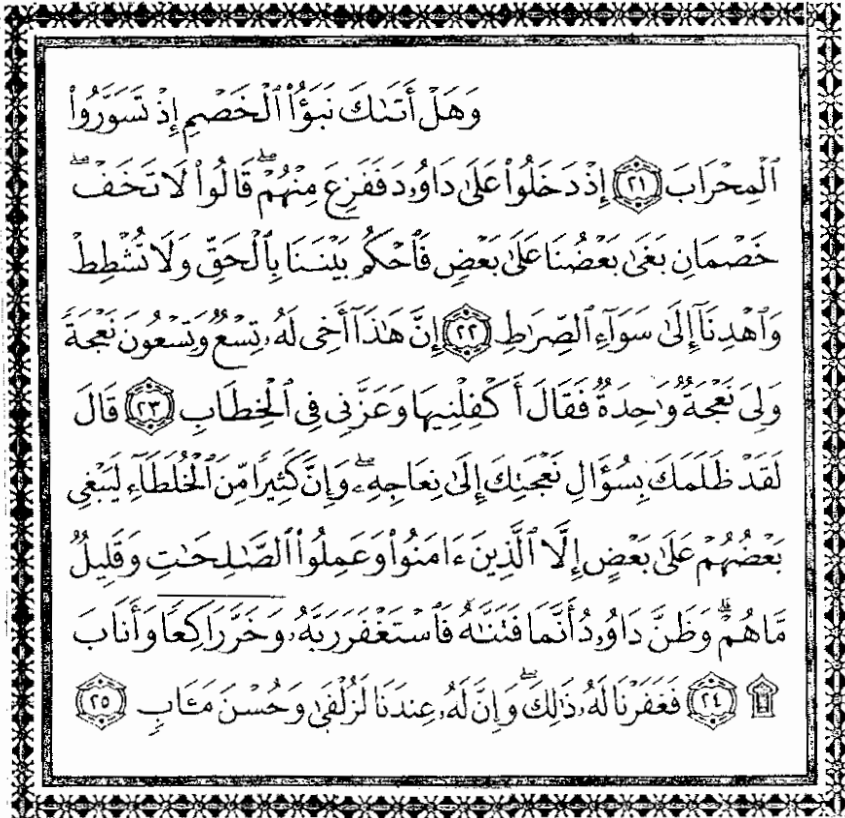 وَهَلْ أَتَىٰكَ نَبَؤُا۟ ٱلْخَصْمِ إِذْ تَسَوَّرُوا۟
ٱلْمِحْرَابَ ٢١ إِذْ دَخَلُوا۟ عَلَىٰ دَاوُۥدَ فَفَزِعَ مِنْهُمْ ۖ قَالُوا۟ لَا تَخَفْ ۖ
خَصْمَانِ بَغَىٰ بَعْضُنَا عَلَىٰ بَعْضٍ فَٱحْكُم بَيْنَنَا بِٱلْحَقِّ وَلَا تُشْطِطْ
وَٱهْدِنَآ إِلَىٰ سَوَآءِ ٱلصِّرَٰطِ ٢٢ إِنَّ هَٰذَآ أَخِى لَهُۥ تِسْعٌ وَتِسْعُونَ نَعْجَةً
وَلِىَ نَعْجَةٌ وَٰحِدَةٌ فَقَالَ أَكْفِلْنِيهَا وَعَزَّنِى فِى ٱلْخِطَابِ ٢٣ قَالَ
لَقَدْ ظَلَمَكَ بِسُؤَالِ نَعْجَتِكَ إِلَىٰ نِعَاجِهِۦ ۖ وَإِنَّ كَثِيرًا مِّنَ ٱلْخُلَطَآءِ لَيَبْغِى
بَعْضُهُمْ عَلَىٰ بَعْضٍ إِلَّا ٱلَّذِينَ ءَامَنُوا۟ وَعَمِلُوا۟ ٱلصَّٰلِحَٰتِ وَقَلِيلٌ
مَّا هُمْ ۗ وَظَنَّ دَاوُۥدُ أَنَّمَا فَتَنَّٰهُ فَٱسْتَغْفَرَ رَبَّهُۥ وَخَرَّ رَاكِعًا وَأَنَابَ
۩ ٢٤ فَغَفَرْنَا لَهُۥ ذَٰلِكَ ۖ وَإِنَّ لَهُۥ عِندَنَا لَزُلْفَىٰ وَحُسْنَ مَـَٔابٍ ٢٥